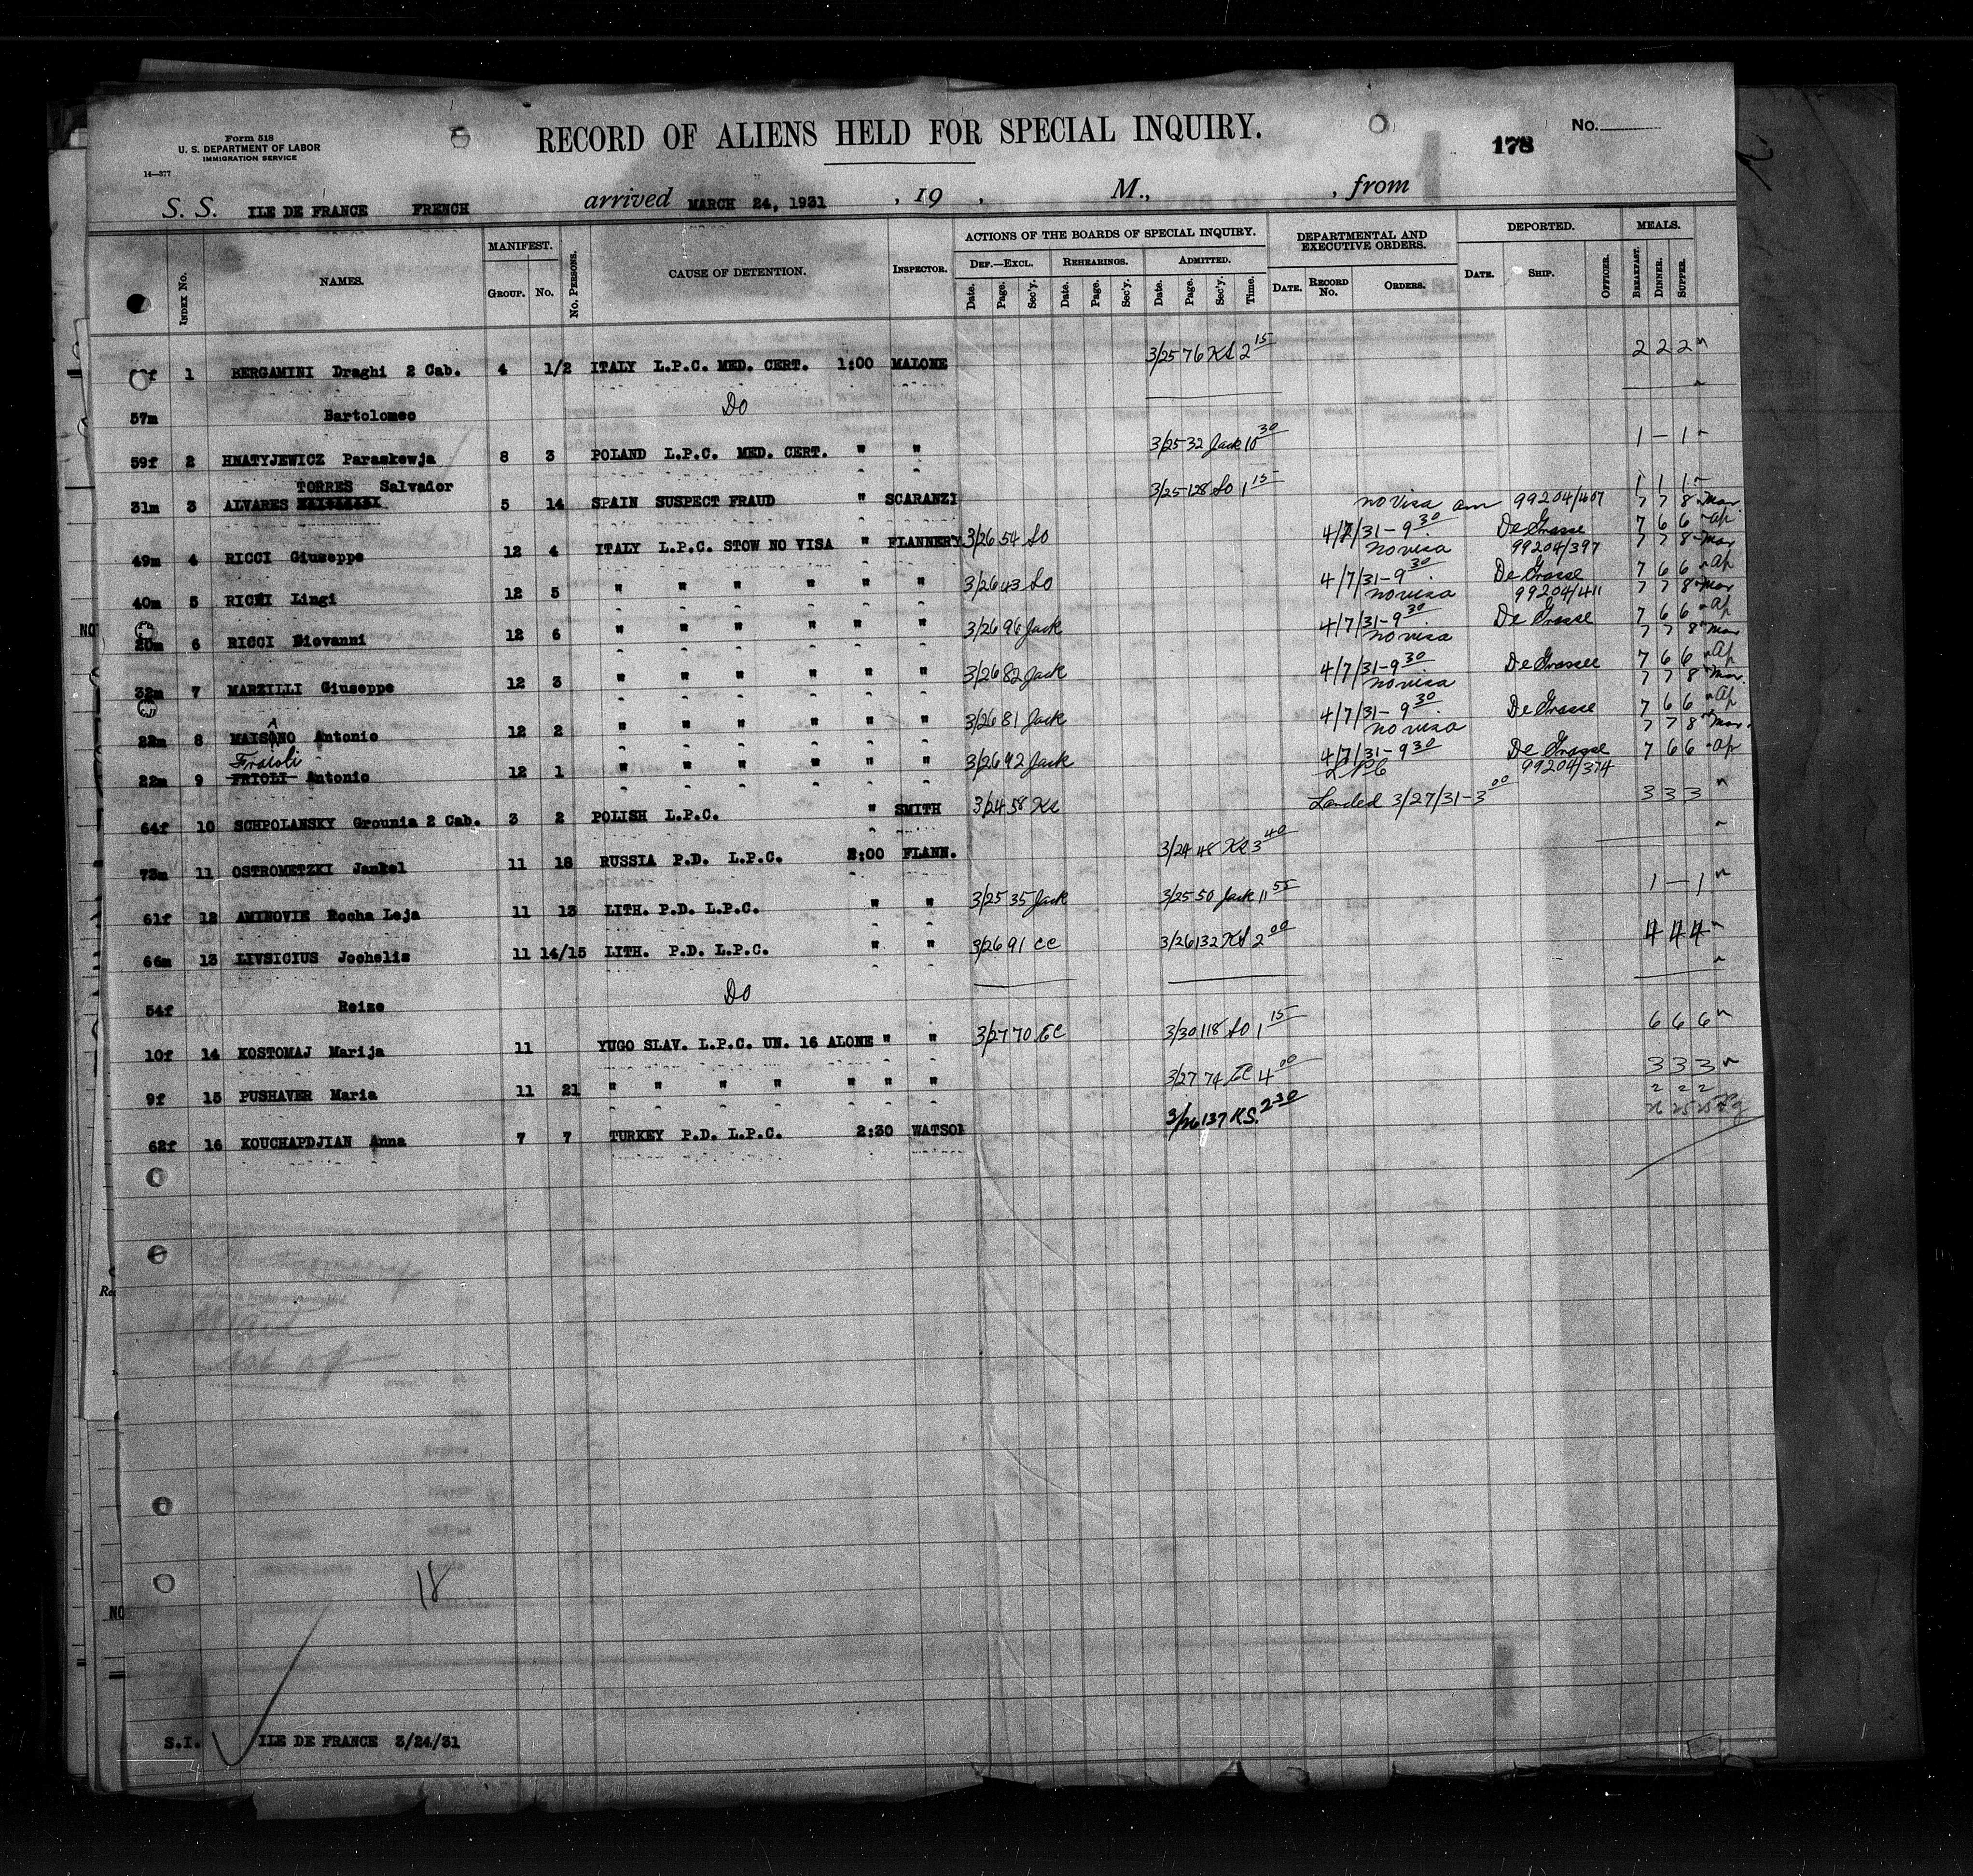 Form 518
U. S. DEPARTMENT OF LABOR
IMMIGRATION SERVICE
14—377
RECORD OF ALIENS HELD FOR SPECIAL INQUIRY.
No.
178
S. S. ILE DE FRANCE FRENCH arrived MARCH 24, 1931 , 19 , M., , from
INDEX No. NAMES. MANIFEST. GROUP. No. No. PERSONS. CAUSE OF DETENTION. INSPECTOR. ACTIONS OF THE BOARDS OF SPECIAL INQUIRY. DEF.—EXCL. Date. Page. Sec'y. REHEARINGS. Date. Page. Sec'y. ADMITTED. Date. Page. Sec'y. Time. DEPARTMENTAL AND EXECUTIVE ORDERS. DATE. RECORD No. ORDERS. DEPORTED. DATE. SHIP. OFFICER. MEALS. BREAKFAST. DINNER. SUPPER.
1 BERGAMINI Draghi 2 Cab. 4 1/2 ITALY L.P.C. MED. CERT. 1:00 MALONE 3/25 76 KS 2 15 2 2 2
57m Bartolomeo Do
59f 2 HNATYJEWICZ Paraskewja 8 3 POLAND L.P.C. MED. CERT. " " 3/25 32 Jack 10 30 1 – 1
TORRES Salvador
31m 3 ALVARES 5 14 SPAIN SUSPECT FRAUD " SCARANZI 3/25 128 SO 1 15 1 1 1
no visa am 99204/407 7 7 8 Mar.
49m 4 RICCI Giuseppe 12 4 ITALY L.P.C. STOW NO VISA " FLANNERY 3/26 54 SO 4/7/31-9 30 De Grasse 7 6 6 Ap
no visa 99204/397 7 7 8 Mar
40m 5 RICCI Lingi 12 5 " " " " " " 3/26 43 SO 4/7/31-9 30 De Grasse 7 6 6 Ap
no visa 99204/411 7 7 8 Mar
20m 6 RICCI Giovanni 12 6 " " " " " " 3/26 96 Jack 4/7/31-9 30 De Grasse 7 6 6 Ap
no visa 7 7 8 Mar
32m 7 MARZILLI Giuseppe 12 3 " " " " " " 3/26 82 Jack 4/7/31-9 30 De Grasse 7 6 6 Ap
no visa 7 7 8 Mar.
22m 8 MAISANO Antonio 12 2 " " " " " " 3/26 81 Jack 4/7/31-9 30 De Grasse 7 6 6 Ap
no visa 7 7 8 Mar.
Fraioli
22m 9 FRIOLI Antonio 12 1 " " " " " " 3/26 92 Jack 4/7/31-9 30 De Grasse 7 6 6 Ap
LPC 99204/374
64f 10 SCHPOLANSKY Grounia 2 Cab. 3 2 POLISH L.P.C. " SMITH 3/24 58 KS Landed 3/27/31-3 00 3 3 3
73m 11 OSTROMETZKI Jankel 11 18 RUSSIA P.D. L.P.C. 2:00 FLANN. 3/24 48 KS 3 40
61f 12 AMINOVIE Rocha Leja 11 13 LITH. P.D. L.P.C. " " 3/25 35 Jack 3/25 50 Jack 11 55 1 – 1
66m 13 LIVSICIUS Jochelis 11 14/15 LITH. P.D. L.P.C. " " 3/26 91 CC 3/26 132 KS 2 00 4 4 4
54f Reize Do
10f 14 KOSTOMAJ Marija 11 YUGO SLAV. L.P.C. UN. 16 ALONE " " 3/27 70 CC 3/30 118 SO 1 15 6 6 6
9f 15 PUSHAVER Maria 11 21 " " " " " " " 3/27 74 CC 4 00 3 3 3
62f 16 KOUCHAPDJIAN Anna 7 7 TURKEY P.D. L.P.C. 2:30 WATSON 3/26 137 KS. 2 30 2 2 2
18
S.I. ILE DE FRANCE 3/24/31